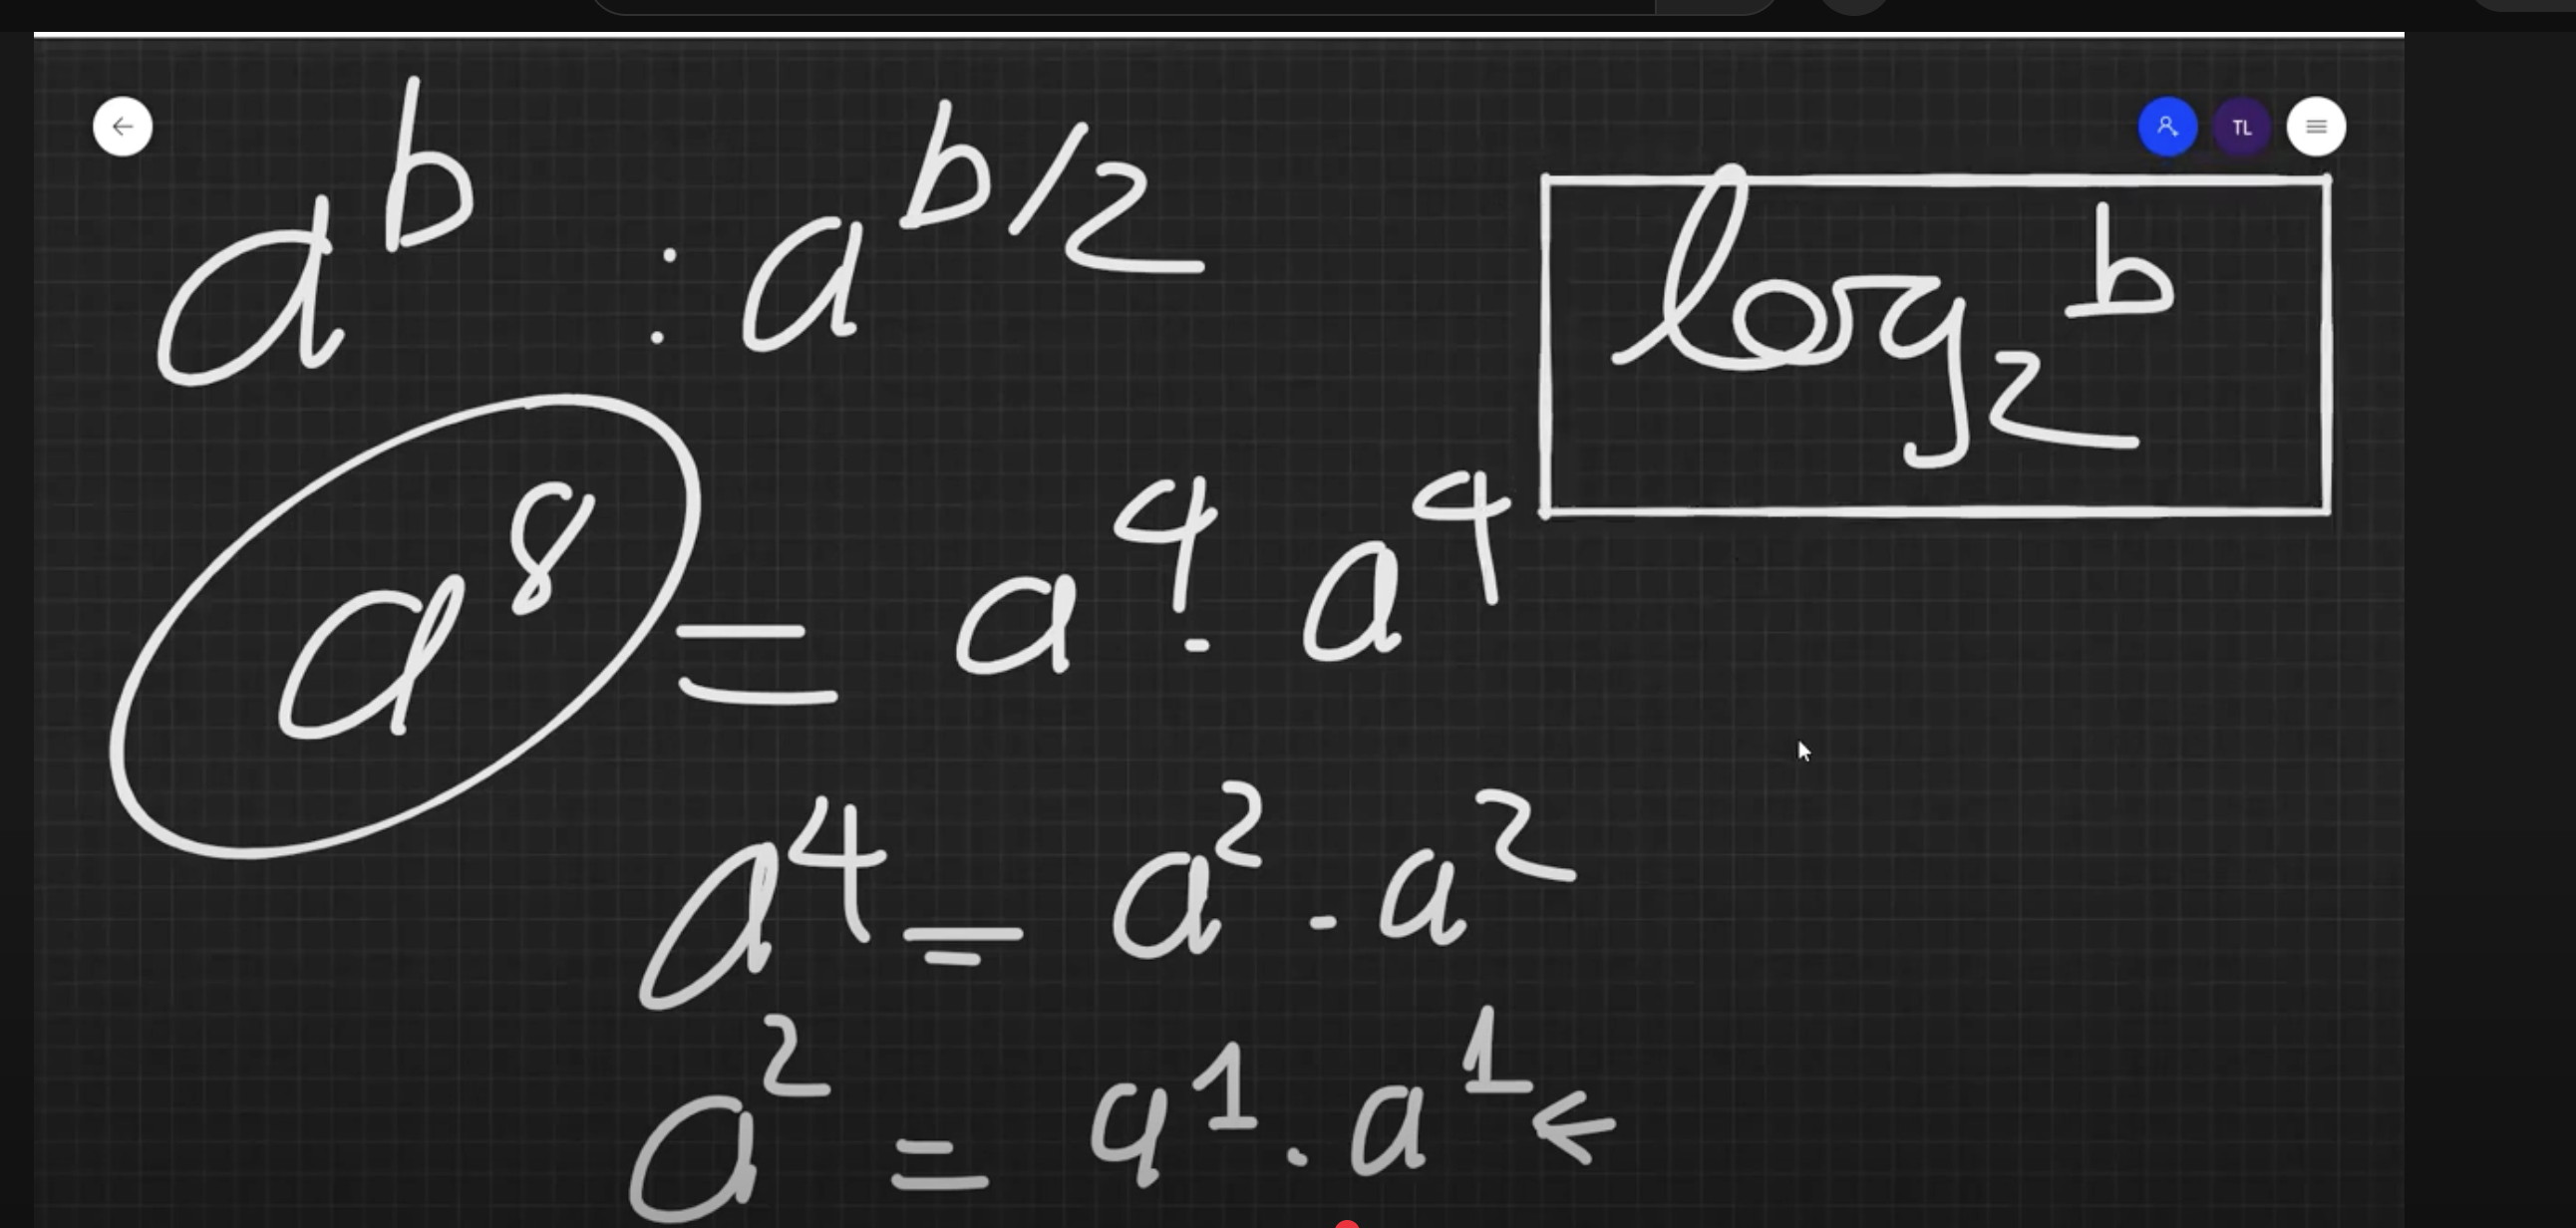 TL
a^b : a^{b/2}
log_2 b
a^8 = a^4 · a^4
a^4 = a^2 · a^2
a^2 = a^1 · a^1 ←